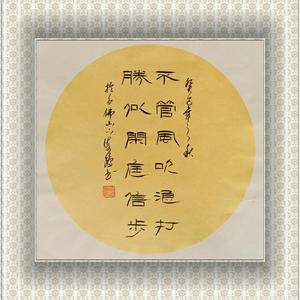 癸巳年之秋
不管風吹浪打
勝似閑庭信步
於千佛山下